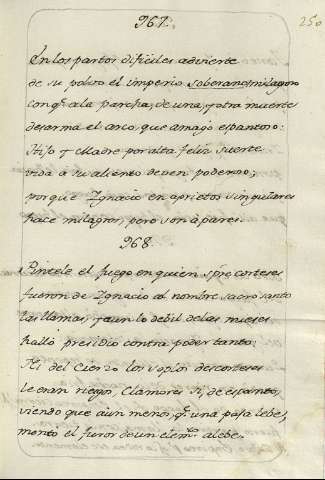 967.
250
En los partos dificiles advierte
de su polvo el imperio soberano milagro
con q̃ a la parcha, de una, y otra muerte
desarma el arco, que amagó espantoso:
Hijo y Madre por alta feliz suerte
vida a su aliento deven poderoso;
porque Ignacio en aprietos singulares
hace milagros, pero son a pares.
968.
Pintese el fuego en quien spre corteses
fueron de Ignacio al nombre sacrosanto
las llamas, y aun lo debil de las mieses
halló presidio contra poder tanto:
Ni del Cierzo los soplos descorteses
le eran riesgo, Clamores si, de espanto,
viendo que aun menos, q̃ una paja lebe,
montó el furor de un elemto alebe.